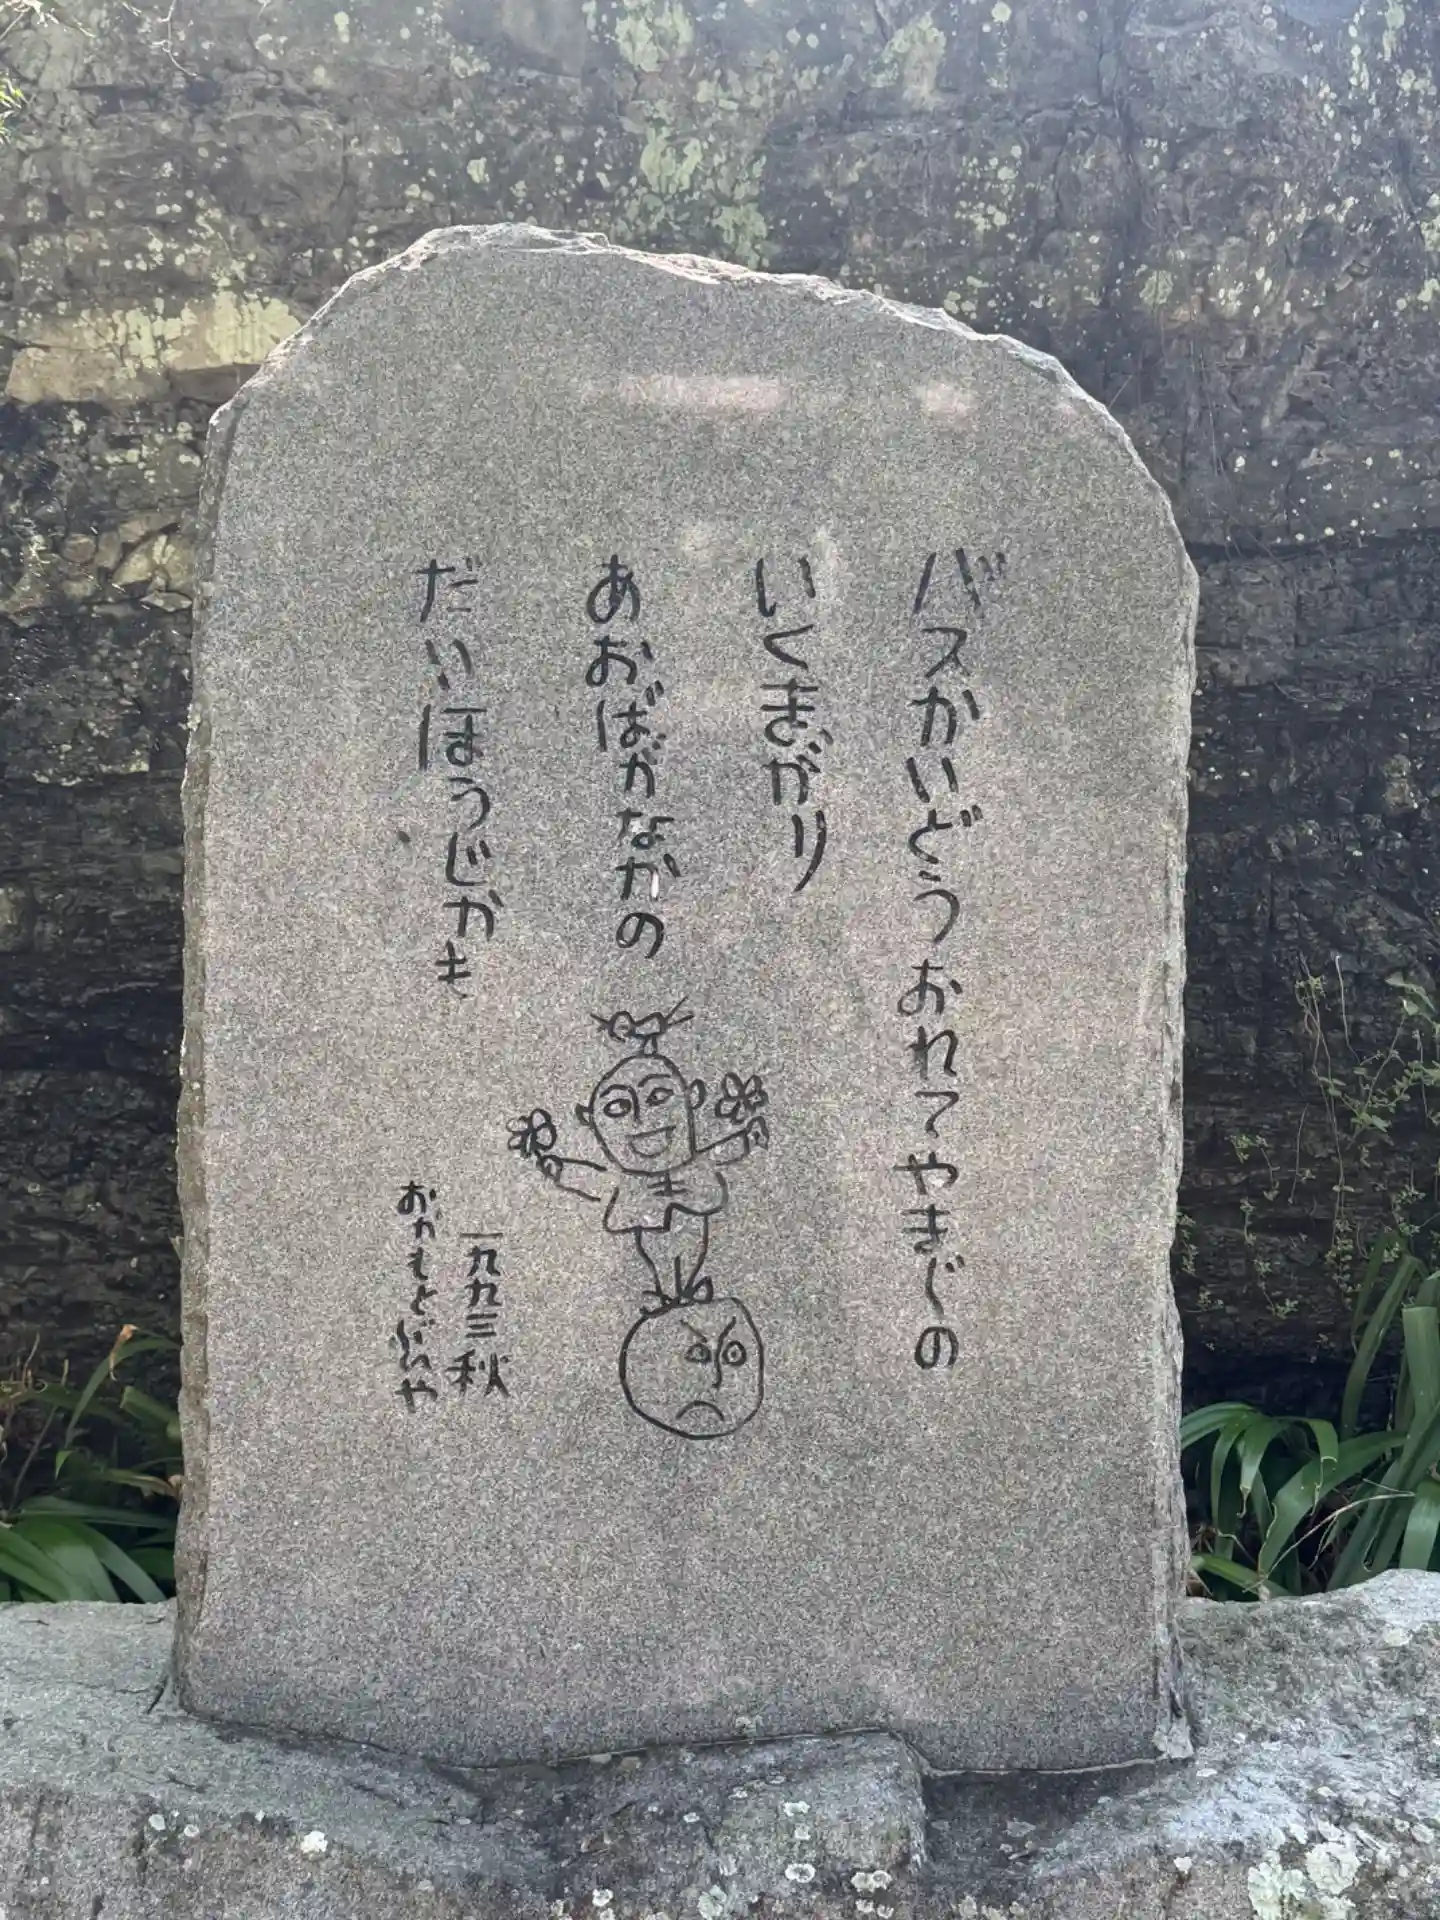 バスかいどうおれてやまじの
いくまがり
あおばがなかの
だいほうじかも
一九九三秋
おかもとぶんや